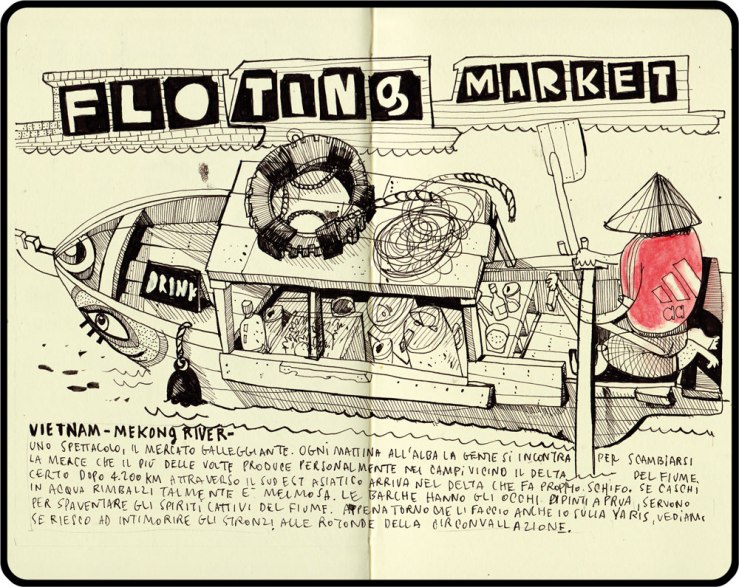 FLOTING MARKET
DRINK
VIETNAM - MEKONG RIVER -
UNO SPETTACOLO, IL MERCATO GALLEGGIANTE. OGNI MATTINA ALL'ALBA LA GENTE SI INCONTRA PER SCAMBIARSI
LA MERCE CHE IL PIÙ DELLE VOLTE PRODUCE PERSONALMENTE NEI CAMPI VICINO IL DELTA DEL FIUME.
CERTO DOPO 4.200 KM ATTRAVERSO IL SUD EST ASIATICO ARRIVA NEL DELTA CHE FA PROPRIO SCHIFO. SE CASCHI
IN ACQUA RIMBALZI TALMENTE E' MELMOSA. LE BARCHE HANNO GLI OCCHI DIPINTI A PRUA, SERVONO
PER SPAVENTARE GLI SPIRITI CATTIVI DEL FIUME. APPENA TORNO ME LI FACCIO ANCHE IO SULLA YARIS, VEDIAMO
SE RIESCO AD INTIMORIRE GLI STRONZI ALLE ROTONDE DELLA CIRCONVALLAZIONE.